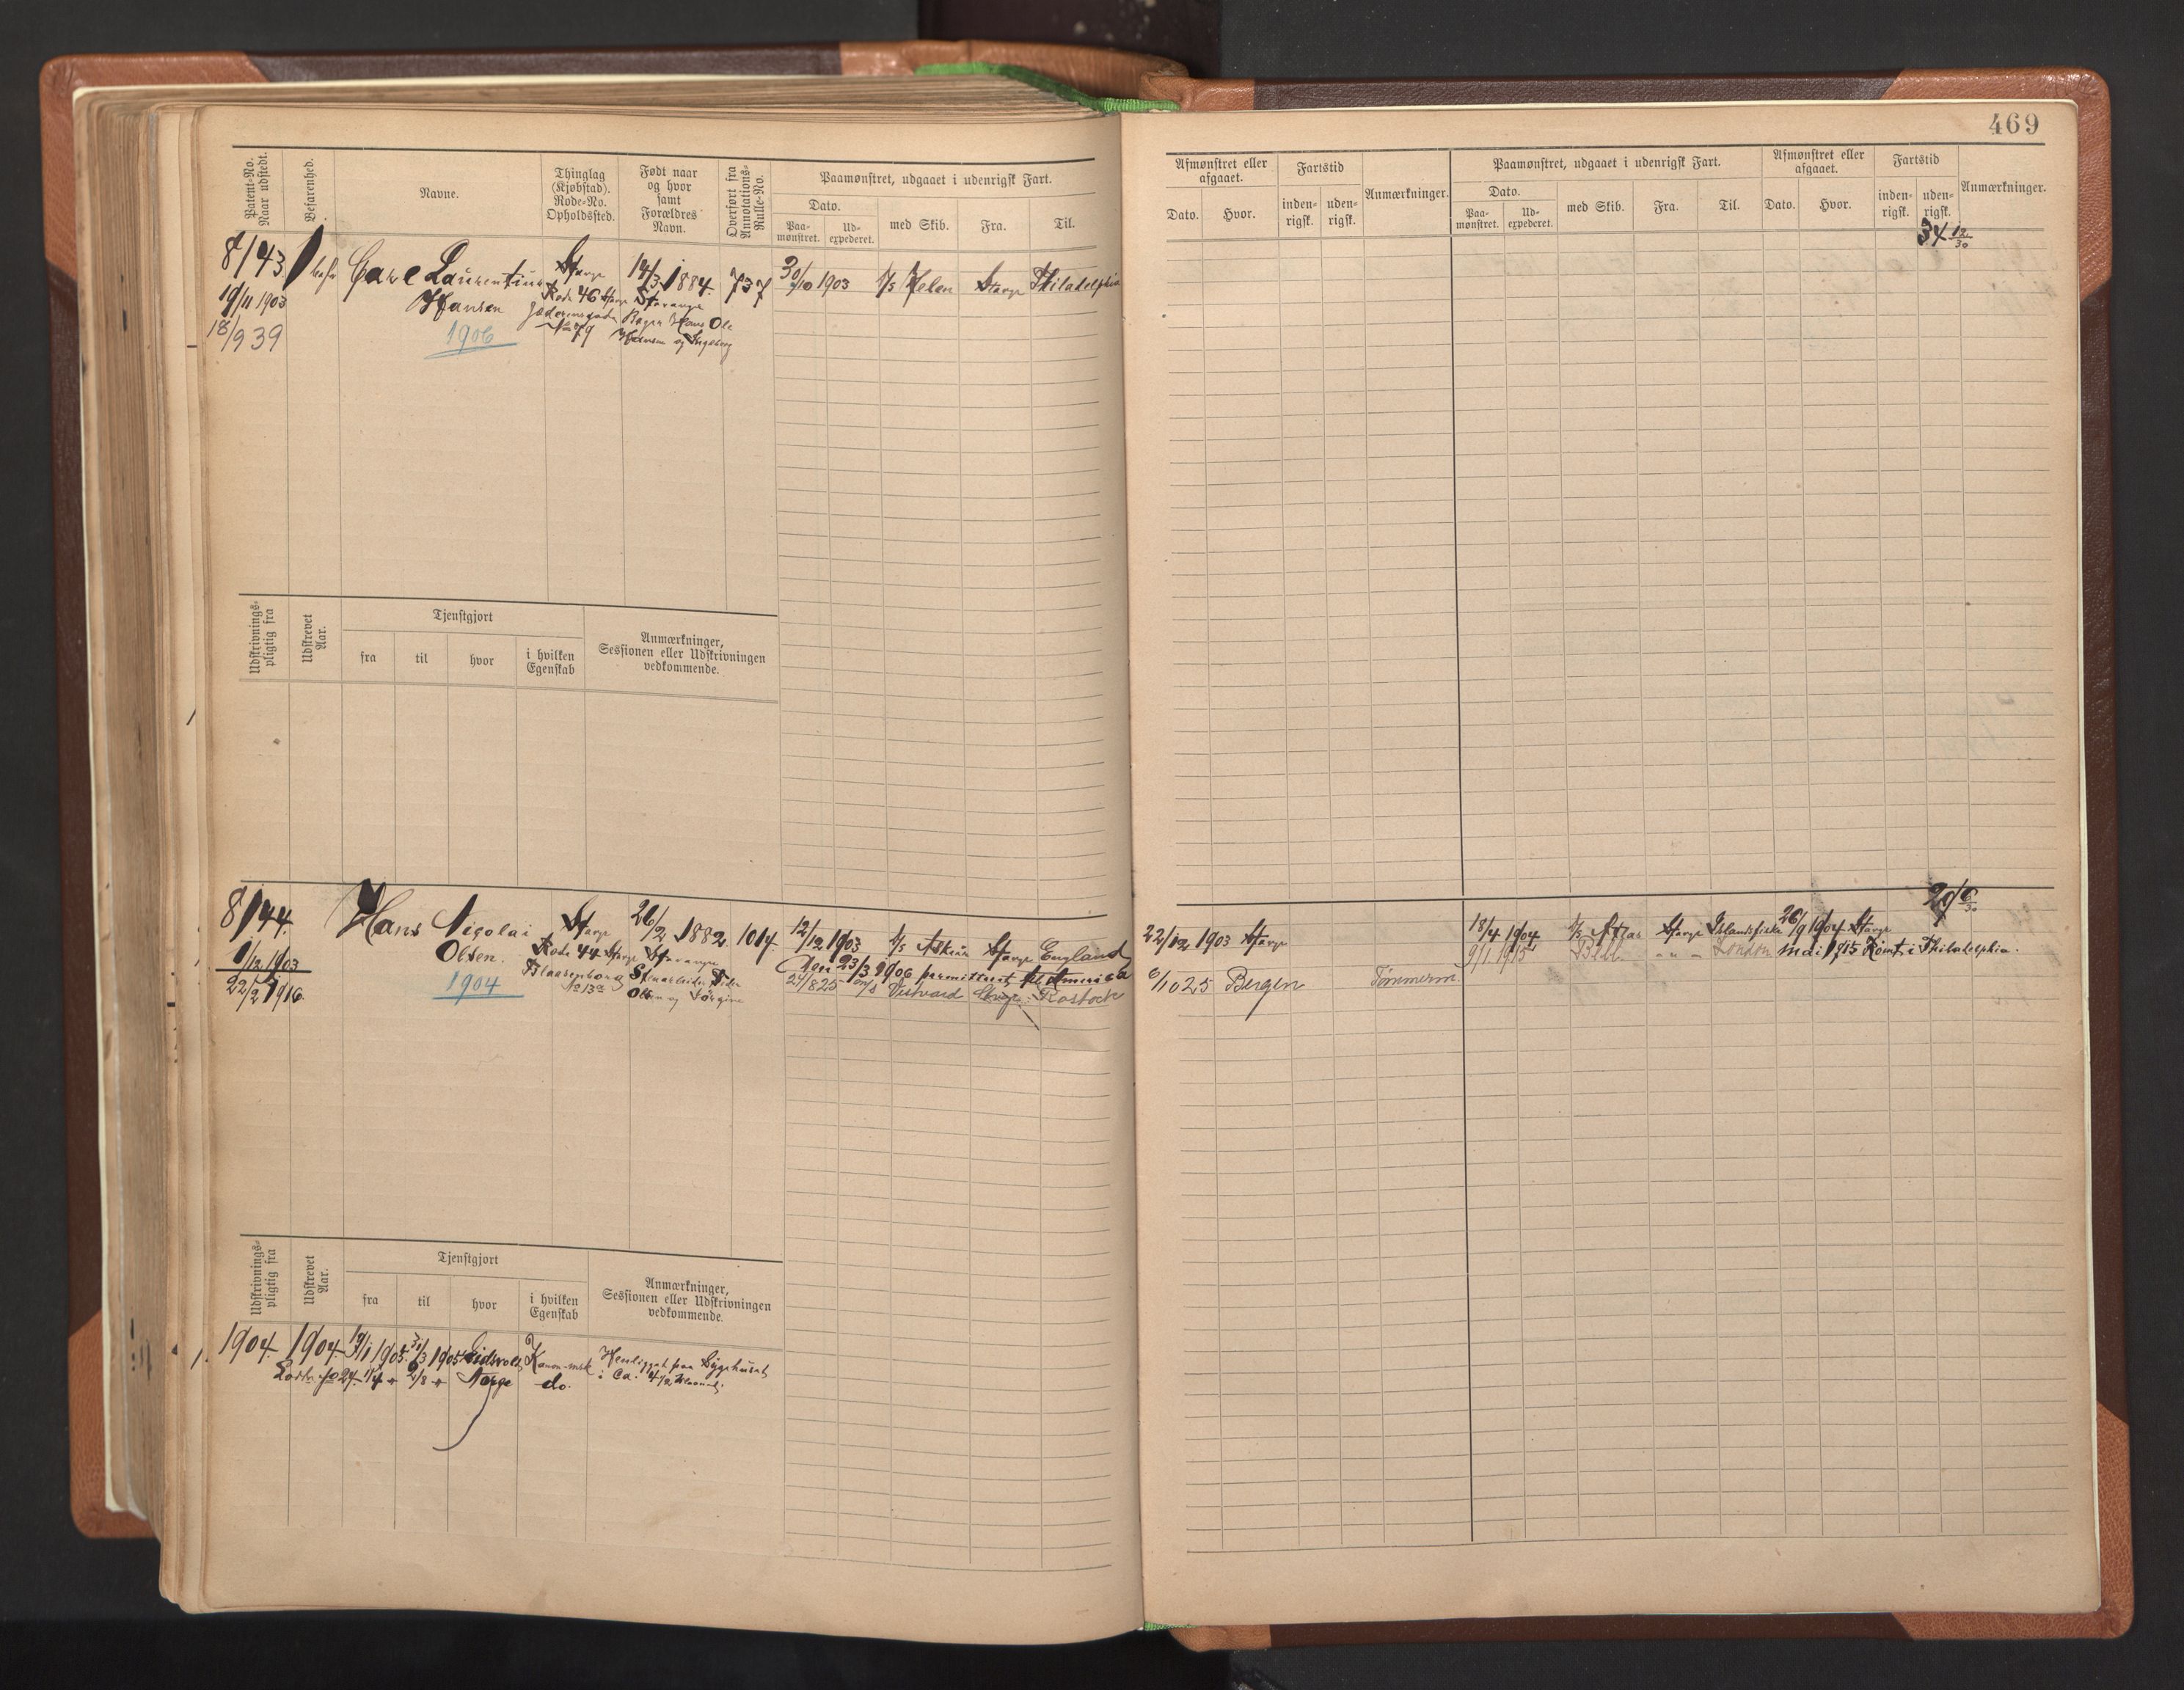 469
Patent-No. Naar udstedt.
Befarenhed.
Navne.
Thinglag (Kjøbstad). Rode-No. Opholdssted.
Født naar og hvor samt Forældres Navn.
Overført fra Annotations-Rulle-No.
Paamønstret, udgaaet i udenrigsk Fart.
Dato.
Paa-mønstret. Ud-expederet. med Skib. Fra. Til.
8143. Carl Laurentius Stavgr 14/3 1884. 737 30/10 1903 S/S Helen Stavgr Philadelphia
19/11 1903 Hansen Rode 46 Stavanger
18/9 39 1906 No 79 Hans Ole
Hansen og Ingeborg
Udskrivnings-pligtig fra
Udskrevet Aar.
Tjenstgjort
fra til hvor i hvilken Egenskab
Anmærkninger, Sessionen eller Udskrivningen vedkommende.
8144. Hans Nicolai Stavgr 26/2 1882. 1014. 12/12 1903 Stavgr England
1/12 1903 Olsen. Rode 44 Stavanger Den 23/3 1906 permitteret til Amerika
22/2 1916 1904 Blaasenborg 21/8 25 m/s Vestvard Rostock
No 13 Olsen og
Udskrivnings-pligtig fra
Udskrevet Aar.
Tjenstgjort
fra til hvor i hvilken Egenskab
Anmærkninger, Sessionen eller Udskrivningen vedkommende.
1904 1904 19/1 1905 31/3 1905 Eidsvold Kanon.msk Henligget paa Sygehuset
1/4 " 2/8 " Norge do. i Ca. 4 1/2 Maaned.
Afmønstret eller afgaaet.
Dato. Hvor.
Fartstid
inden-rigsk. uden-rigsk.
Anmærkninger.
Paamønstret, udgaaet i udenrigsk Fart.
Dato.
Paa-mønstret. Ud-expederet. med Skib. Fra. Til.
Afmønstret eller afgaaet.
Dato. Hvor.
Fartstid
inden-rigsk. uden-rigsk.
Anmærkninger.
34 12/30
29 6/30
22/12 1903 Stavgr 18/4 1904 S/S Atlas Stavgr Islandsfiske 20/9 1904 Stavgr
9/1 1915 Bell " " London mai 1915 Rømt i Philadelphia.
6/10 25 Bergen Tømmerm.